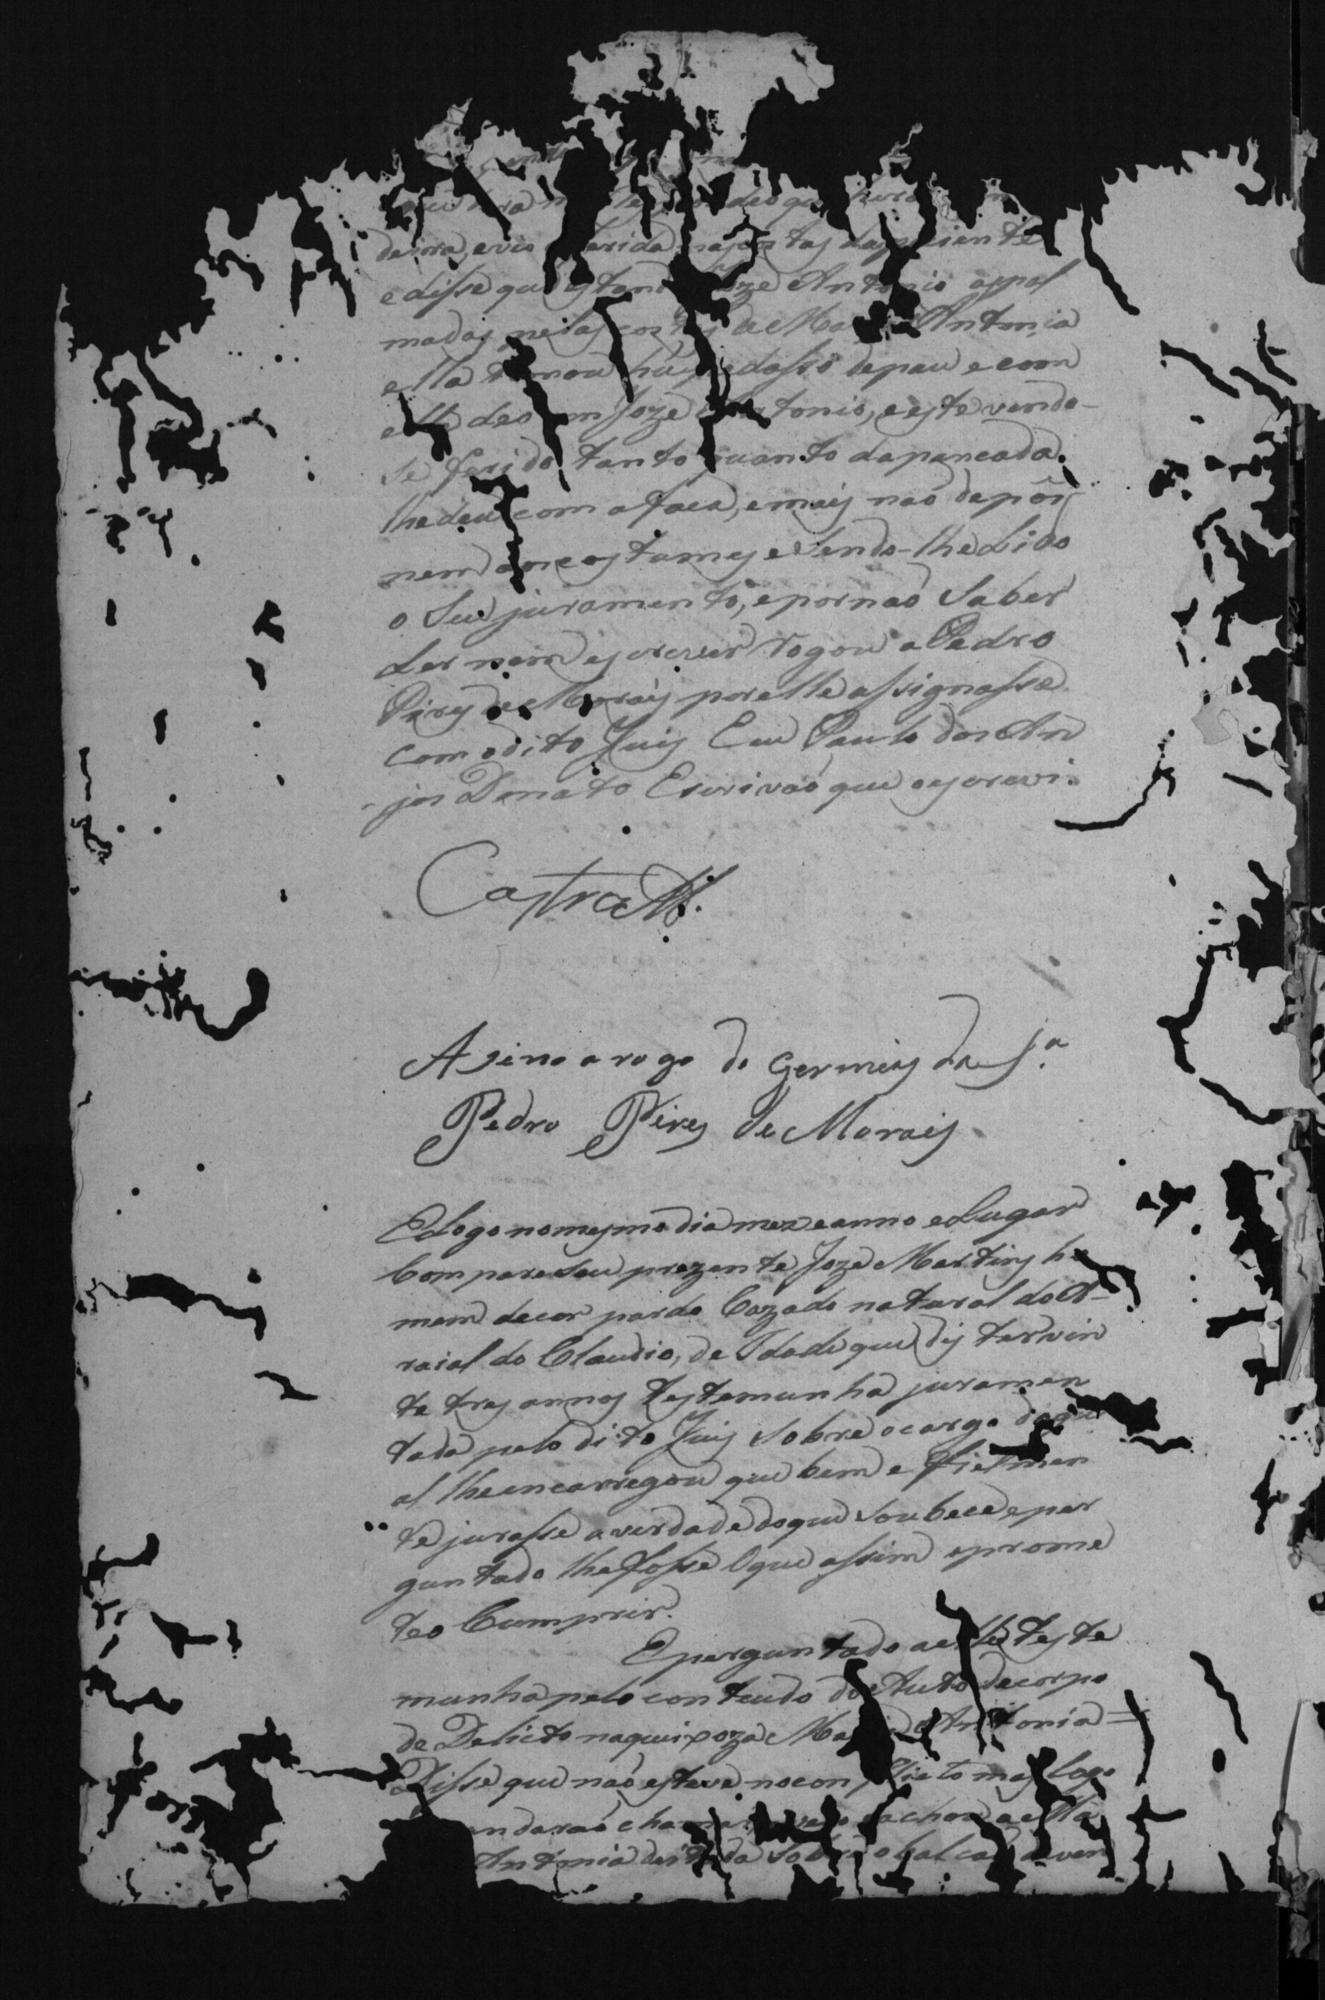 de ora, e vio a ferida nas costas da paciente
e disse que estando Joze Antonio aspal
madas nelas costas de Maria Antonia
ella tomou hú pedasso de pau e com
elle deo em Joze Antonio, e este vendo-
se ferido tanto quanto da pancada
lhe deu com a faca, e mais naõ depôs
nem aos costumes e sendo-lhe Lido
o seu juramento, e por naõ saber
Ler nem escrever rogou a Pedro
Pires de Morais por elle assignasse
com o dito Juis Eu Paulo dos An
jos Donato Escrivaõ que o escrevi.
Castro M.
Asino a rogo de Germias da Sª.
Pedro Pires de Morais
E logo no mesmo dia mez e anno e Lugar
Compareseu prezente Joze Martins ho
mem de cor pardo Cazado natural do A-
raial do Claudio, de Idade que dis ter vin
te tres annos testemunha juramen
tada pelo dito Juis sobre o cargo do qu
al lhe encarregou que bem e fielmen
te jurasse a verdade do que soubece e per
guntado lhe fosse O que assim o prome
teo Cumprir.
E perguntado a elle teste
munha pelo conteudo do Auto de corpo
de Delicto naqueixoza Maria Antonia =
Disse que naõ esteve no conflicto mas logo
andaraõ chamar e veio e achou a ella
Antonia deitada sobre o balcaõ a ven